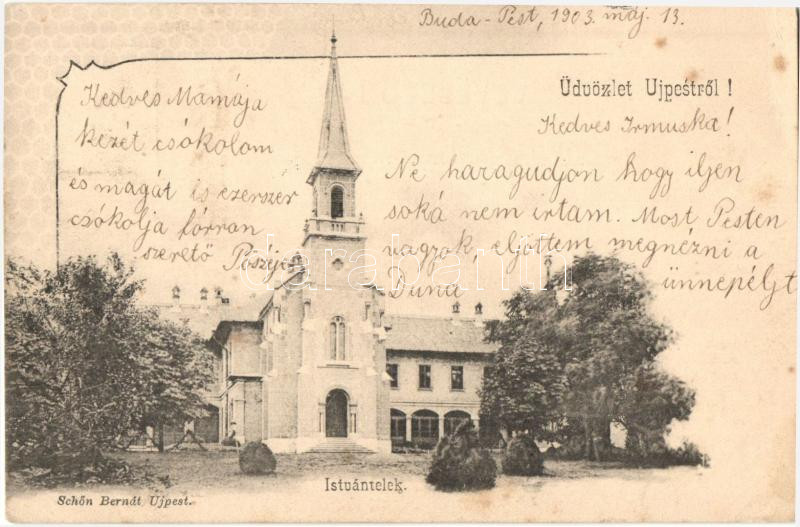 Buda-Pest, 1903. máj. 13.
Üdvözlet Ujpestről!
Kedves Irmuska!
Ne haragudjon hogy iljen
soká nem irtam. Most Pesten
vagyok, eljöttem megnézni a
Duna
ünnepéljt
Kedves Mamája
kezét csókolom
és magát is ezerszer
csókolja forran
szerető
darabanth
Istvántelek.
Schön Bernát, Ujpest.